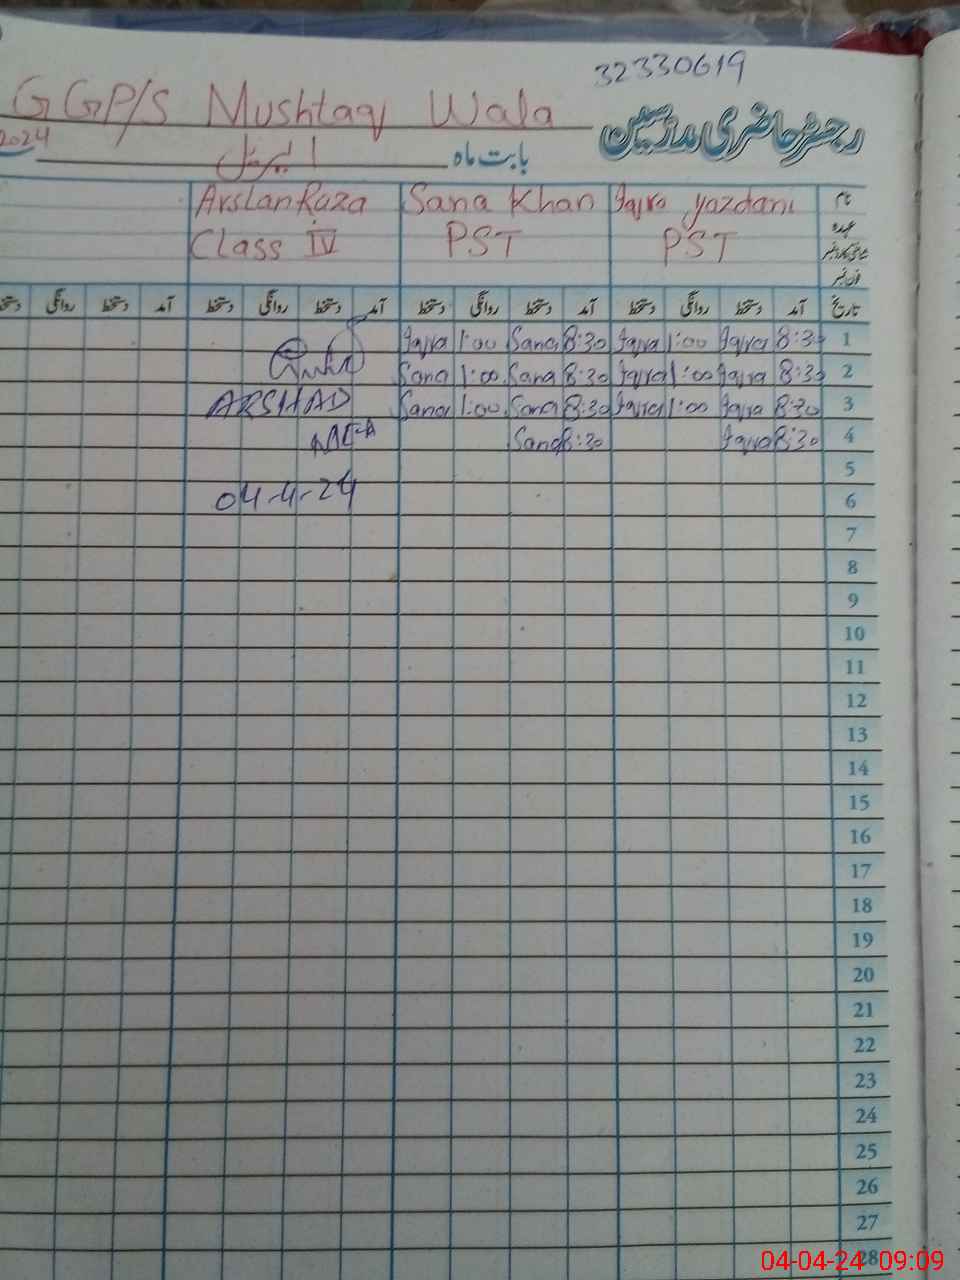 32330619
GGP/S Mushtaq Wala رجسٹر حاضری مدرسین
2024 اپریل بابت ماہ
Arslan Raza Sana Khan Iqra yazdani نام
Class IV PST PST عہدہ
دستخط روانگی دستخط آمد دستخط روانگی دستخط آمد دستخط روانگی دستخط آمد دستخط روانگی دستخط آمد تاریخ
Iqra 1:00 Sana 8:30 Iqra 1:00 Iqra 8:30 1
Sana 1:00 Sana 8:30 Iqra 1:00 Iqra 8:30 2
ARSHAD Sana 1:00 Sana 8:30 Iqra 1:00 Iqra 8:30 3
MEA Sana 8:30 Iqra 8:30 4
5
04-4-24 6
7
8
9
10
11
12
13
14
15
16
17
18
19
20
21
22
23
24
25
26
27
28
04-04-24 09:09